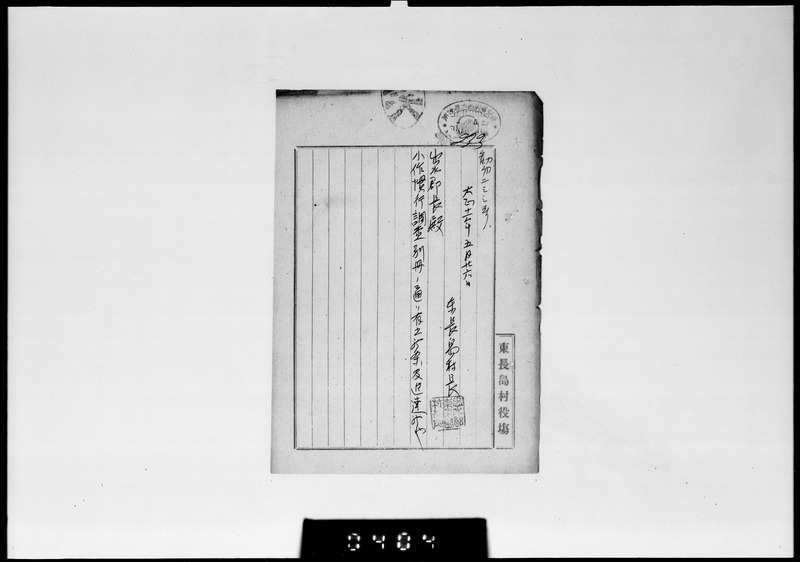 大正十一年五月廿六日
東長島村長
出水郡長殿
小作慣行調査別冊ノ通リ有之候条及進達候也
東長島村役場
0404